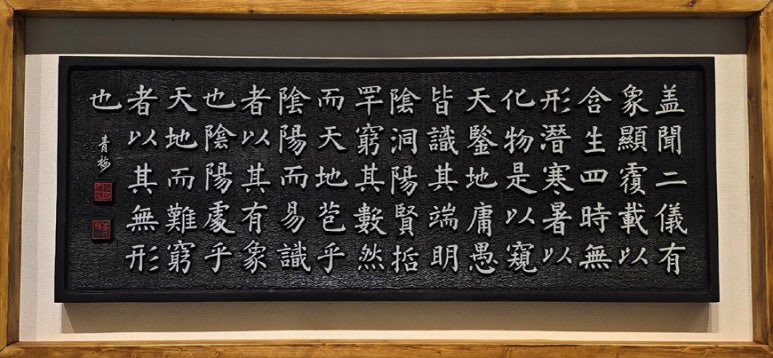 盖聞二儀有
象顯覆載以
含生四時無
形潛寒暑以
化物是以窺
天鑒地庸愚
皆識其端明
陰洞陽賢哲
罕窮其數然
而天地苞乎
陰陽而易識
者以其有象
也陰陽處乎
天地而難窮
者以其無形
也
青梅